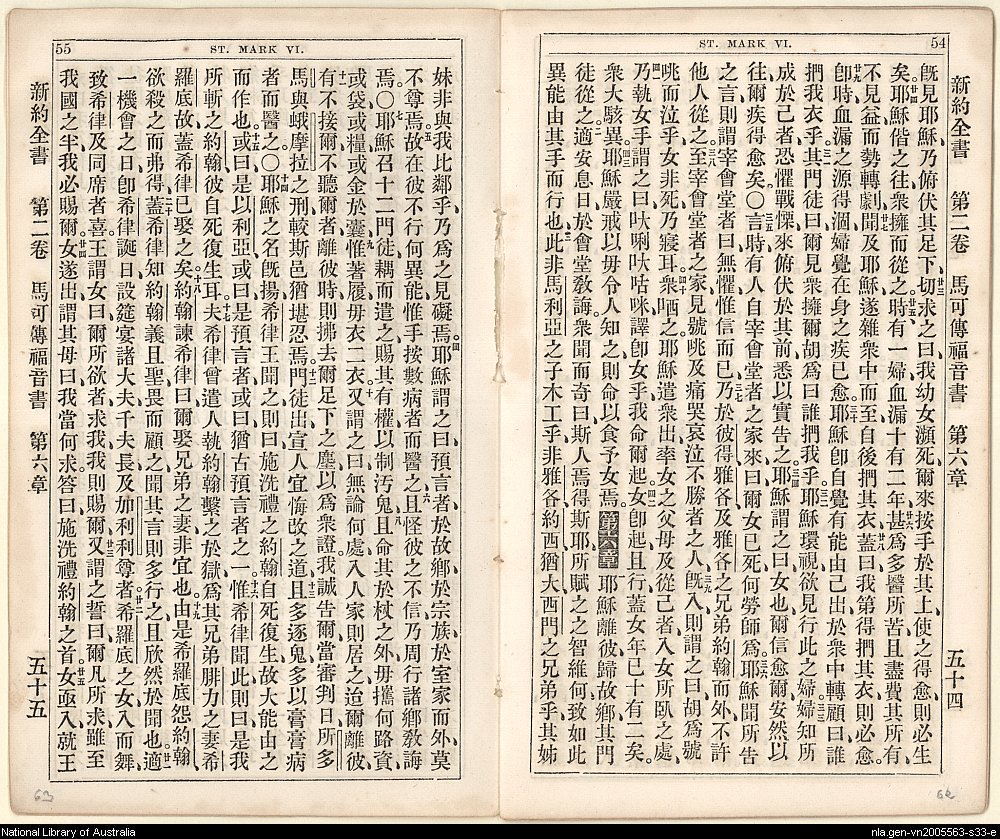 54
ST. MARK VI.
新約全書 第二卷 馬可傳福音書 第六章 五十四
旣見耶穌、乃俯伏其足下、切求之曰、我幼女瀕死、爾來按手於其上、使之得愈、則必生
矣。耶穌偕之往、衆擁而從之。時有一婦血漏十有二年、甚爲多醫所苦、且盡費其所有、
不見益而勢轉劇、聞及耶穌、遂雜衆中而至自後捫其衣、蓋曰、我第得捫其衣、則必愈。
卽時血漏之源得涸、婦覺在身之疾已愈、耶穌卽自覺有能由己出、於衆中轉顧曰、誰
捫我衣乎、其門徒曰、爾見衆擁爾、胡爲曰誰捫我乎、耶穌環視、欲見行此之婦、婦知所
成於己者、恐懼戰慄、來俯伏於其前、悉以實告之、耶穌謂之曰、女也、爾信愈爾、安然以
往、爾疾得愈矣。〇言時、有人自宰會堂者之家來曰、爾女已死、何勞師爲、耶穌聞所告
之言、則謂宰會堂者曰、無懼、惟信而已、乃於彼得雅各及雅各之兄弟約翰而外、不許
他人從之、至宰會堂者之家、見號咷及痛哭哀泣不勝者之人、旣入、則謂之曰、胡爲號
咷而泣乎、女非死、乃寢耳、衆哂之、耶穌遣衆出、率女之父母及從己者、入女所臥之處、
乃執女手、謂之曰、㕭唎㕭咕咪、譯卽女乎、我命爾起、女卽起且行、蓋女年已十有二矣。
衆大駭異、耶穌嚴戒以毋令人知之、則命以食予女焉。第六章 耶穌離彼歸故鄉、其門
徒從之、適安息日、於會堂敎誨、衆聞而奇曰、斯人焉得斯耶、所賦之之智維何、致如此
異能由其手而行也、此非馬利亞之子木工乎、非雅各約西猶大西門之兄弟乎、其姊
55
ST. MARK VI.
新約全書 第二卷 馬可傳福音書 第六章 五十五
妹非與我比鄰乎、乃爲之見礙焉。耶穌謂之曰、預言者、於故鄉、於宗族、於室家而外、莫
不尊焉、故在彼不行何異能、惟手按數病者而醫之、且怪彼之不信、乃周行諸鄉敎誨
焉。〇耶穌召十二門徒、耦而遣之、賜其有權以制汚鬼、且命其於杖之外、毋攜何路資、
或袋、或糧、或金於囊、惟著履、毋衣二衣、又謂之曰、無論何處入人家、則居之、迨爾離彼、
有不接爾、不聽爾者、離彼時、則拂去爾足下之塵、以爲衆證、我誠告爾、當審判日、所多
馬與蛾摩拉之刑、較斯邑猶堪忍焉。門徒出宣人宜悔改之道、且多逐鬼、多以膏膏病
者而醫之。〇耶穌之名旣揚、希律王聞之則曰、施洗禮之約翰、自死復生、故大能由之
而作也、或曰是以利亞、或曰是預言者、或曰猶古預言者之一、惟希律聞此則曰、是我
所斬之約翰、彼自死復生耳、夫希律曾遣人執約翰、繫之於獄、爲其兄弟腓力之妻希
羅底故、蓋希律已娶之矣、約翰諫希律曰、爾娶兄弟之妻、非宜也、由是希羅底怨約翰、
欲殺之而弗得、蓋希律知約翰義且聖、畏而顧之、聞其言則多行之、且欣然於聞也、適
一機會之日、卽希律誕日、設筵宴諸大夫、千夫長、及加利利尊者、希羅底之女入而舞、
致希律及同席者喜、王謂女曰、爾所欲者求我、我則賜爾、又謂之誓曰、爾凡所求、雖至
我國之半、我必賜爾、女遂出、謂其母曰、我當何求、答曰、施洗禮約翰之首、女亟入就王
63
62
National Library of Australia
nla.gen-vn2005563-s33-e